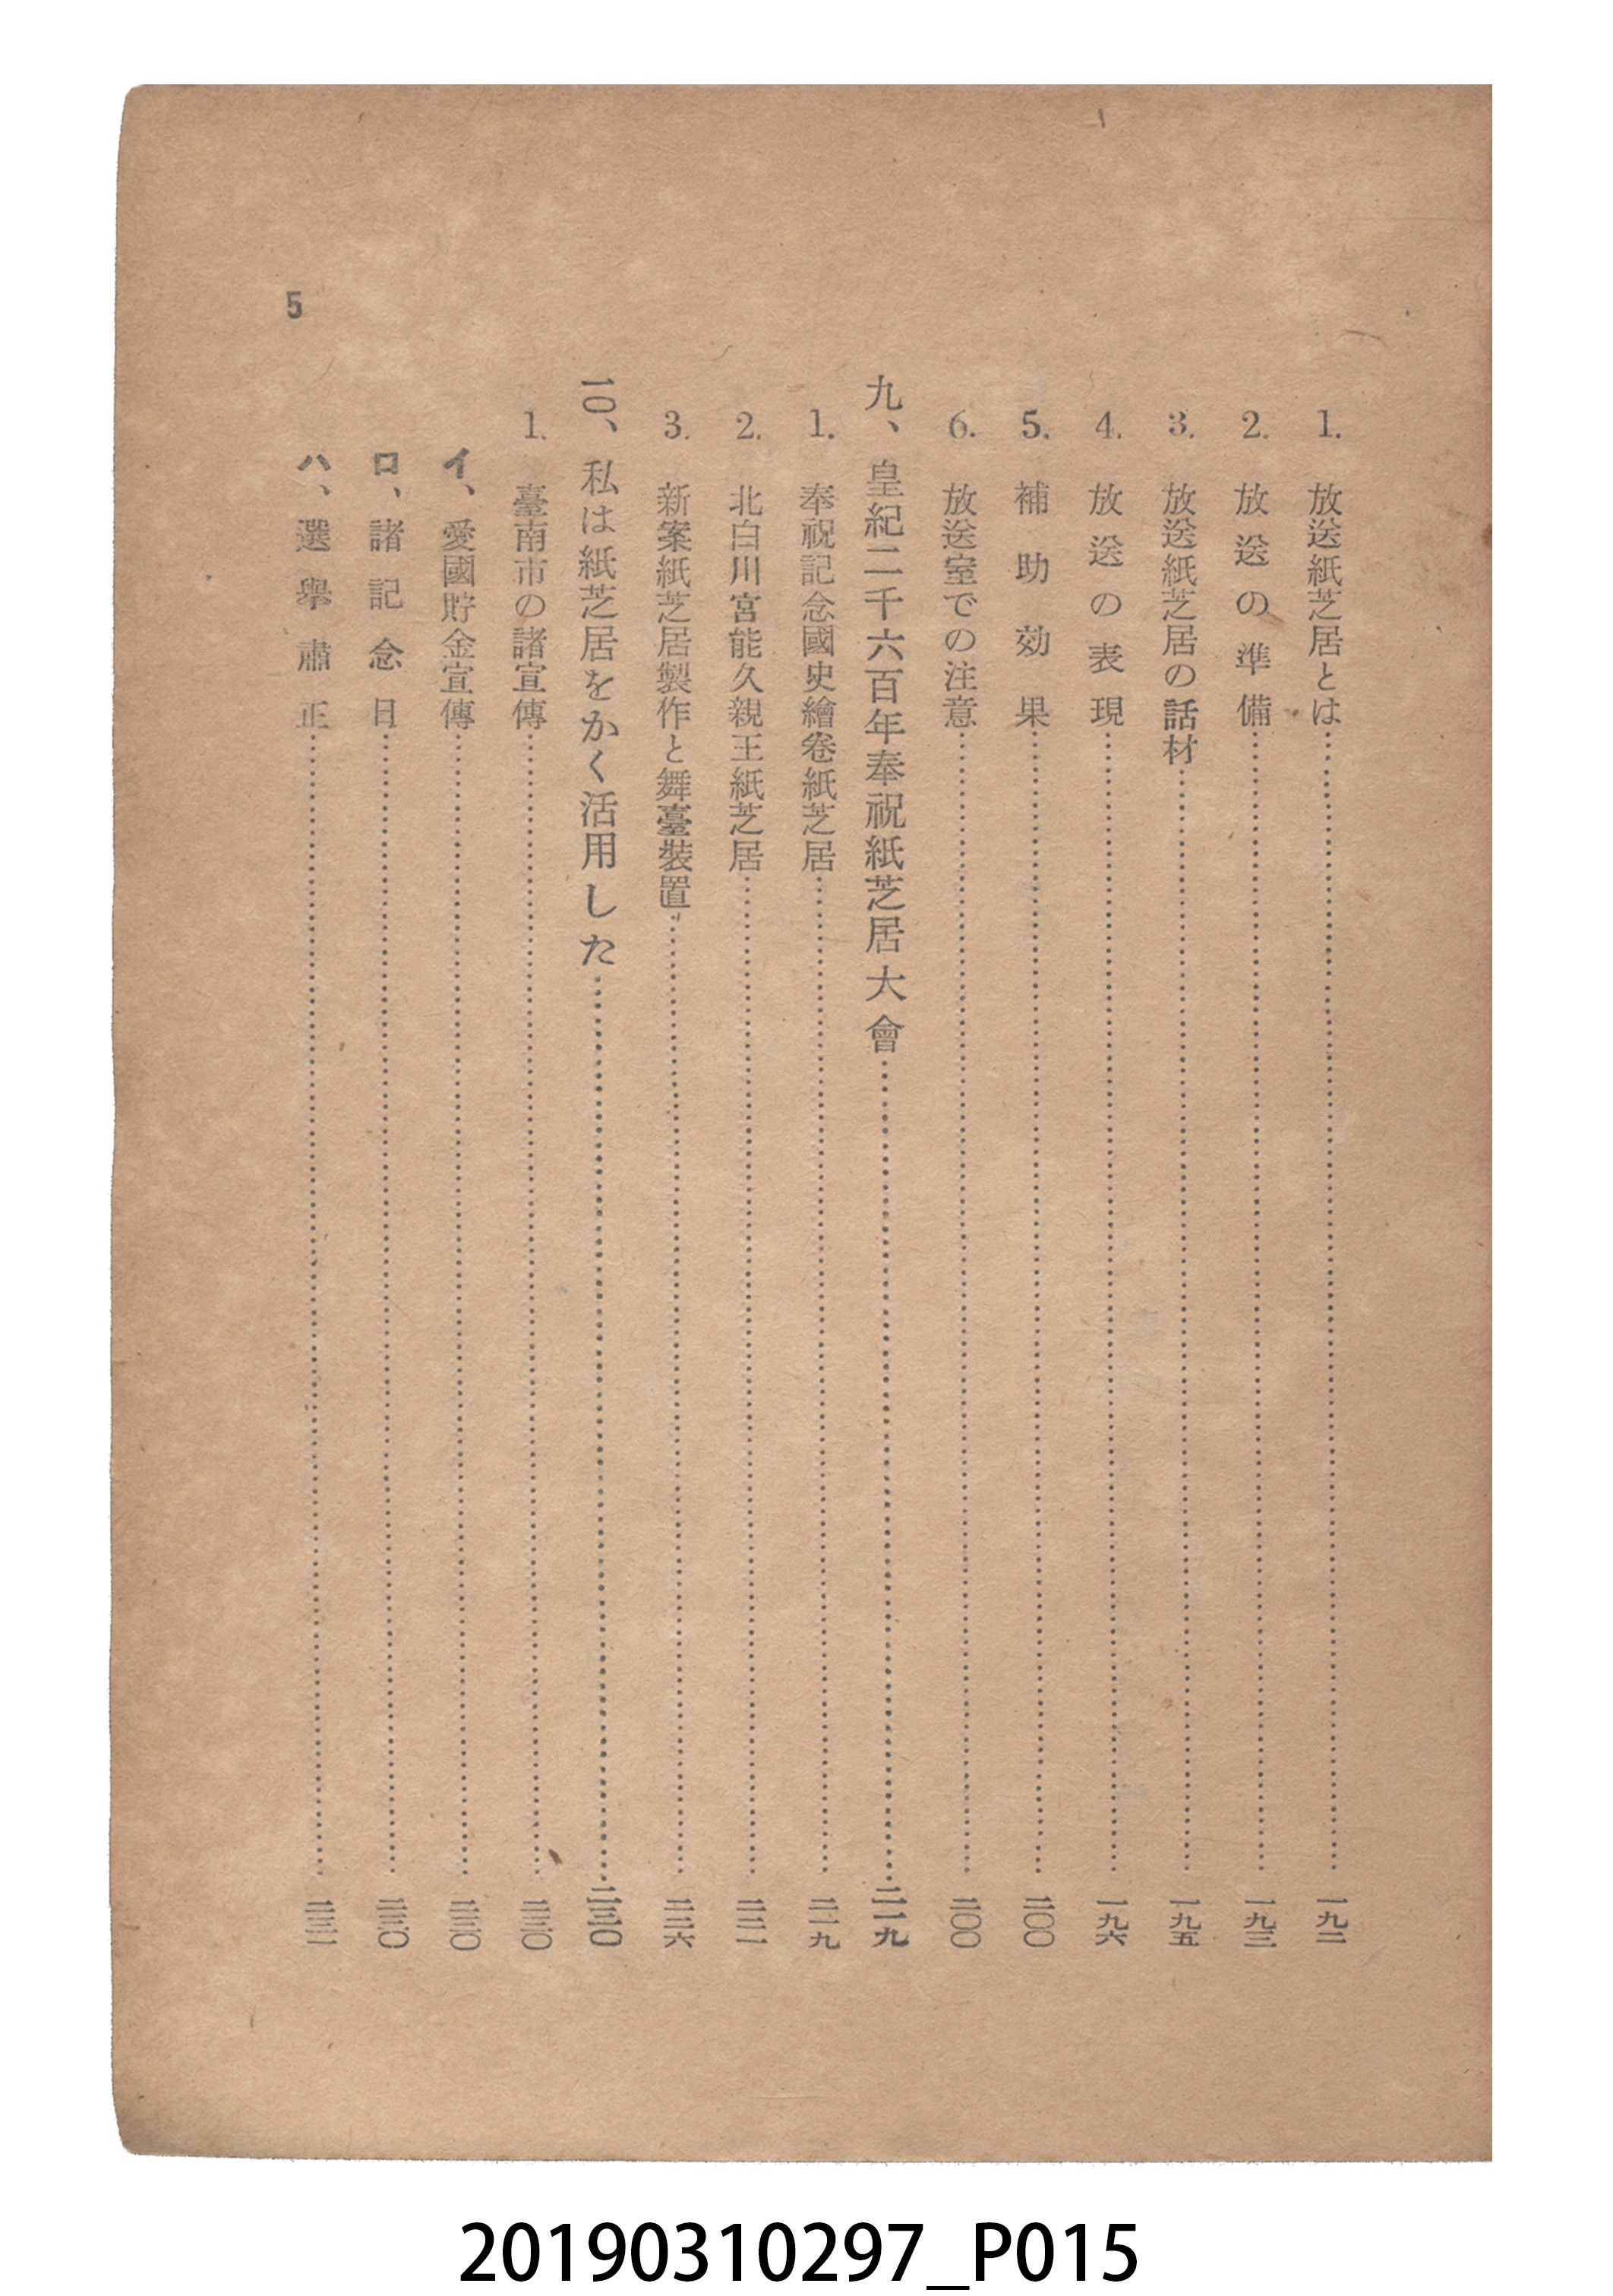 1. 放送紙芝居とは……一九二
2. 放送の準備……一九三
3. 放送紙芝居の話材……一九五
4. 放送の表現……一九六
5. 補助効果……二〇〇
6. 放送室での注意……二〇〇
九、皇紀二千六百年奉祝紙芝居大會……二一九
1. 奉祝記念國史繪卷紙芝居……二一九
2. 北白川宮能久親王紙芝居……二二一
3. 新案紙芝居製作と舞臺裝置……二二六
一〇、私は紙芝居をかく活用した……二三〇
1. 臺南市の諸宣傳……二三〇
イ、愛國貯金宣傳……二三〇
ロ、諸記念日……二三〇
ハ、選擧肅正……二三一
5
20190310297_P015